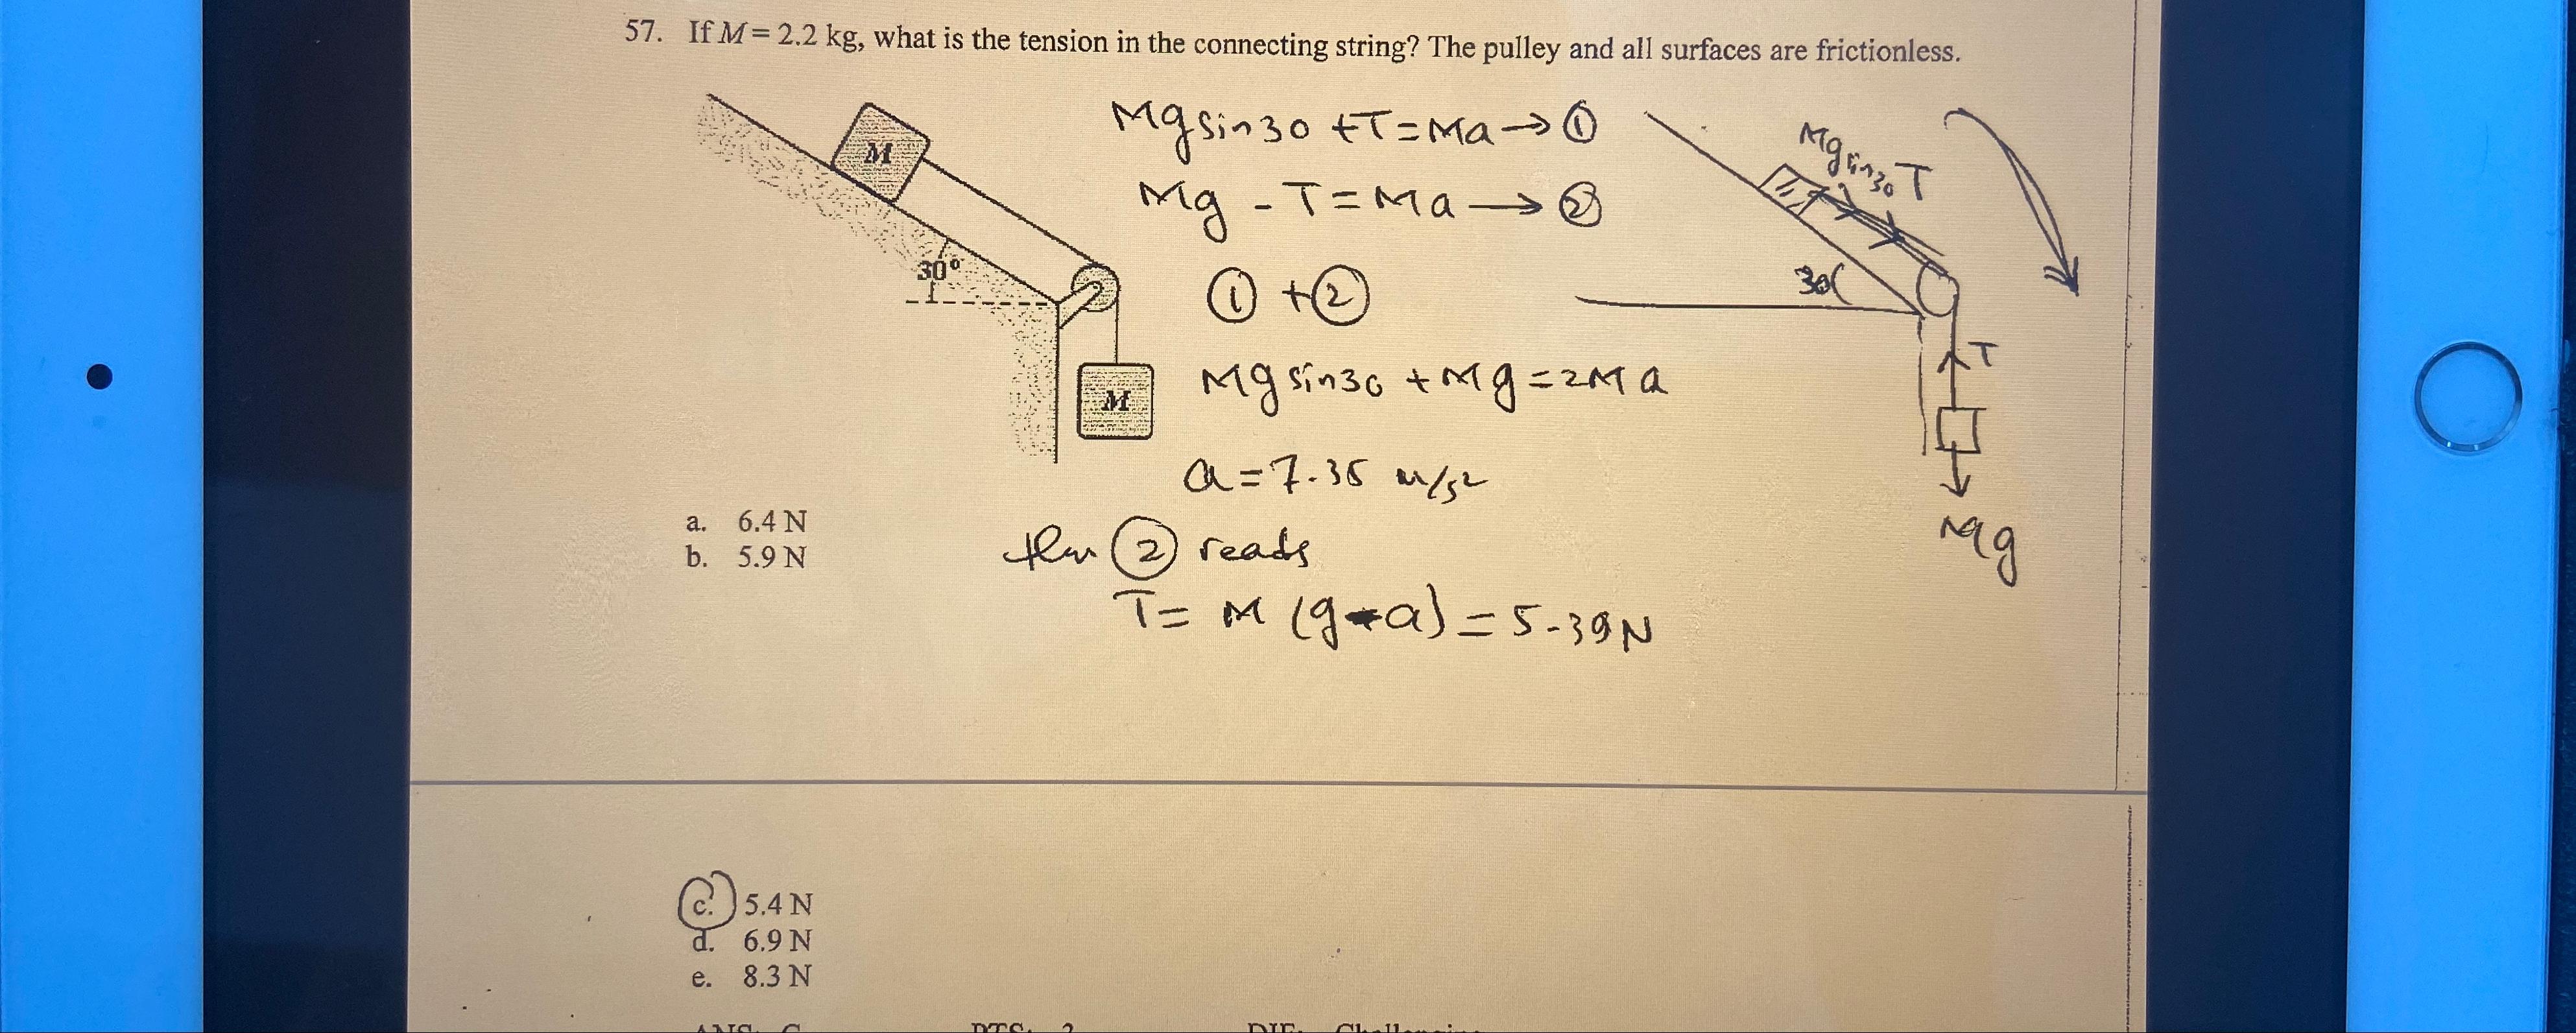 57. If M = 2.2 kg, what is the tension in the connecting string? The pulley and all surfaces are frictionless.
M
30°
M
Mg sin30 + T = Ma → ①
Mg - T = Ma → ②
① + ②
Mg sin30 + Mg = 2Ma
a = 7.35 m/s²
then ② reads
T = M (g - a) = 5.39 N
Mg sin30 T
30
T
Mg
a. 6.4 N
b. 5.9 N
c. 5.4 N
d. 6.9 N
e. 8.3 N
ANS: C PTS: 2 DIF: Challenging